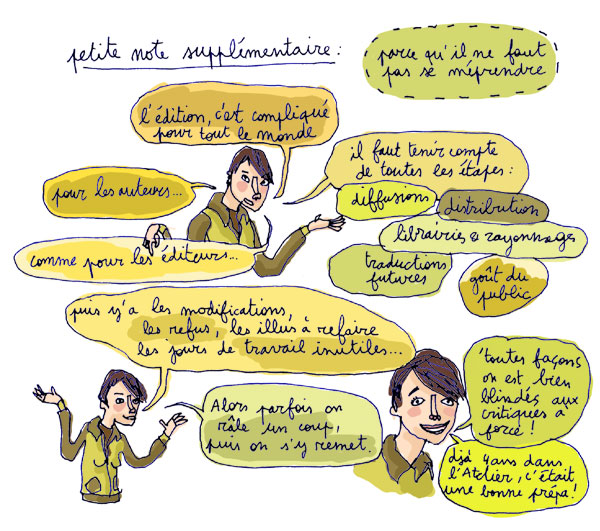 petite note supplémentaire :
parce qu'il ne faut
pas se méprendre
l'édition, c'est compliqué
pour tout le monde
pour les auteurs...
comme pour les éditeurs...
il faut tenir compte
de toutes les étapes :
diffusions
distribution
librairies & rayonnages
traductions
futures
goût du
public
puis y'a les modifications,
les refus, les illus à refaire
les jours de travail inutiles...
Alors parfois on
râle un coup,
puis on s'y remet.
'toutes façons
on est bien
blindés aux
critiques à
force !
déjà 4 ans dans
l'Atelier, c'était
une bonne prépa !